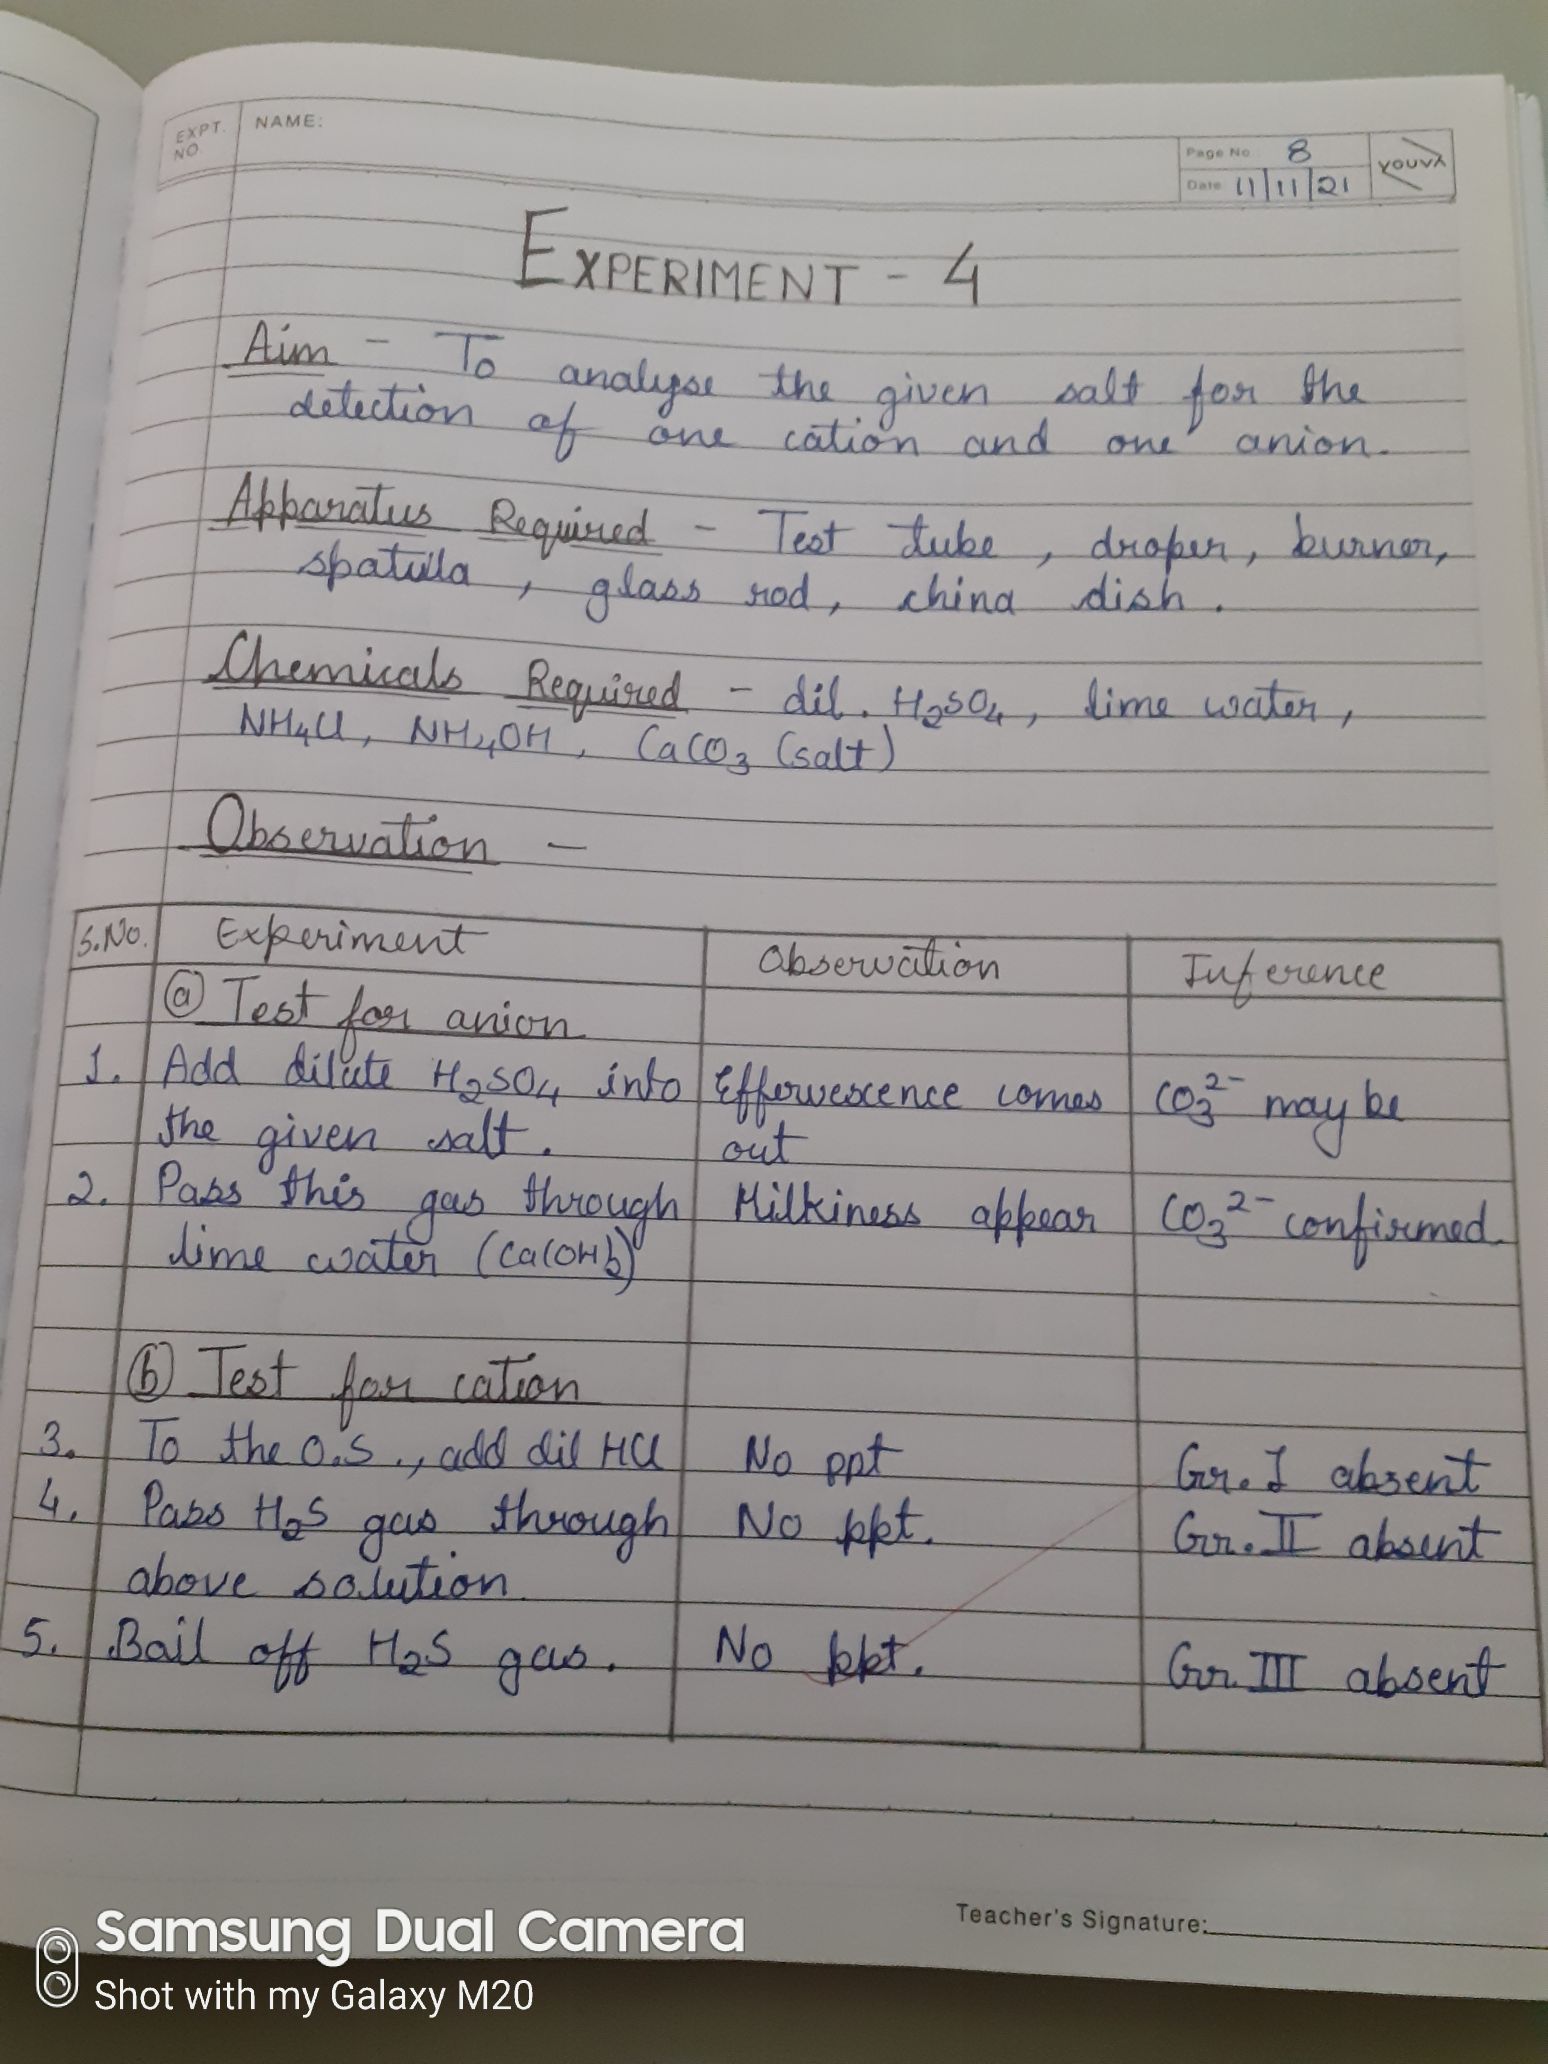 EXPT. NO.
NAME:
Page No. 8
Date 11/11/21
YOUVA
EXPERIMENT - 4
Aim - To analyse the given salt for the
detection of one cation and one anion.
Apparatus Required - Test tube, droper, burner,
spatulla, glass rod, china dish.
Chemicals Required - dil. H2SO4, lime water,
NH4Cl, NH4OH, CaCO3 (salt)
Observation -
S.No. Experiment Observation Inference
(a) Test for anion
1. Add dilute H2SO4 into Effervescence comes CO3^2- may be
the given salt. out
2. Pass this gas through Milkiness appear CO3^2- confirmed
lime water (Ca(OH)2)
(b) Test for cation
3. To the O.S., add dil HCl No ppt Gr. I absent
4. Pass H2S gas through No ppt. Gr. II absent
above solution
5. Bail off H2S gas. No ppt. Gr. III absent
Teacher's Signature:
Samsung Dual Camera
Shot with my Galaxy M20